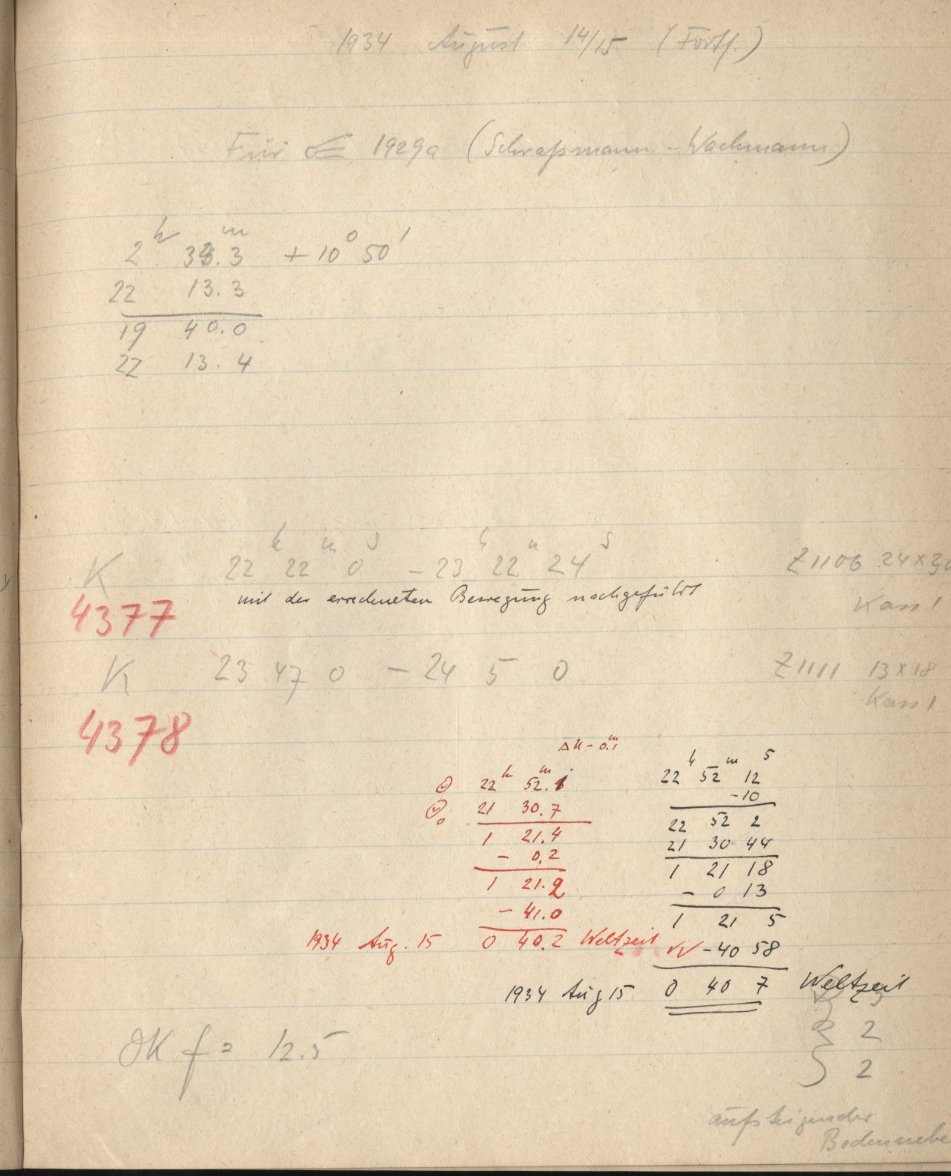 1934 August 14/15 (Forts.)
Für ☄ 1929a (Schwaßmann-Wachmann)
2ʰ 33.3ᵐ + 10° 50'
22 13.3
19 40.0
22 13.4
22ʰ 22ᵐ 0ˢ - 23ʰ 22ᵐ 24ˢ
K Z1106 24x30
mit der errechneten Bewegung nachgeführt
4377 Kass 1
K 23 47 0 - 24 5 0 Z1111 13x18
Kass 1
4378
Δu - 0.1ᵐ
⊙ 22ʰ 52.1ᵐ
⊙₀ 21 30.7
1 21.4
- 0.2
1 21.2
- 41.0
1934 Aug. 15 0 40.2 Weltzeit
22ʰ 52ᵐ 12ˢ
-10
22 52 2
21 30 44
1 21 18
- 0 13
1 21 5
-40 58
1934 Aug 15 0 40 7 Weltzeit
2
2
f = 12.5
aufsteigender
Bodennebe